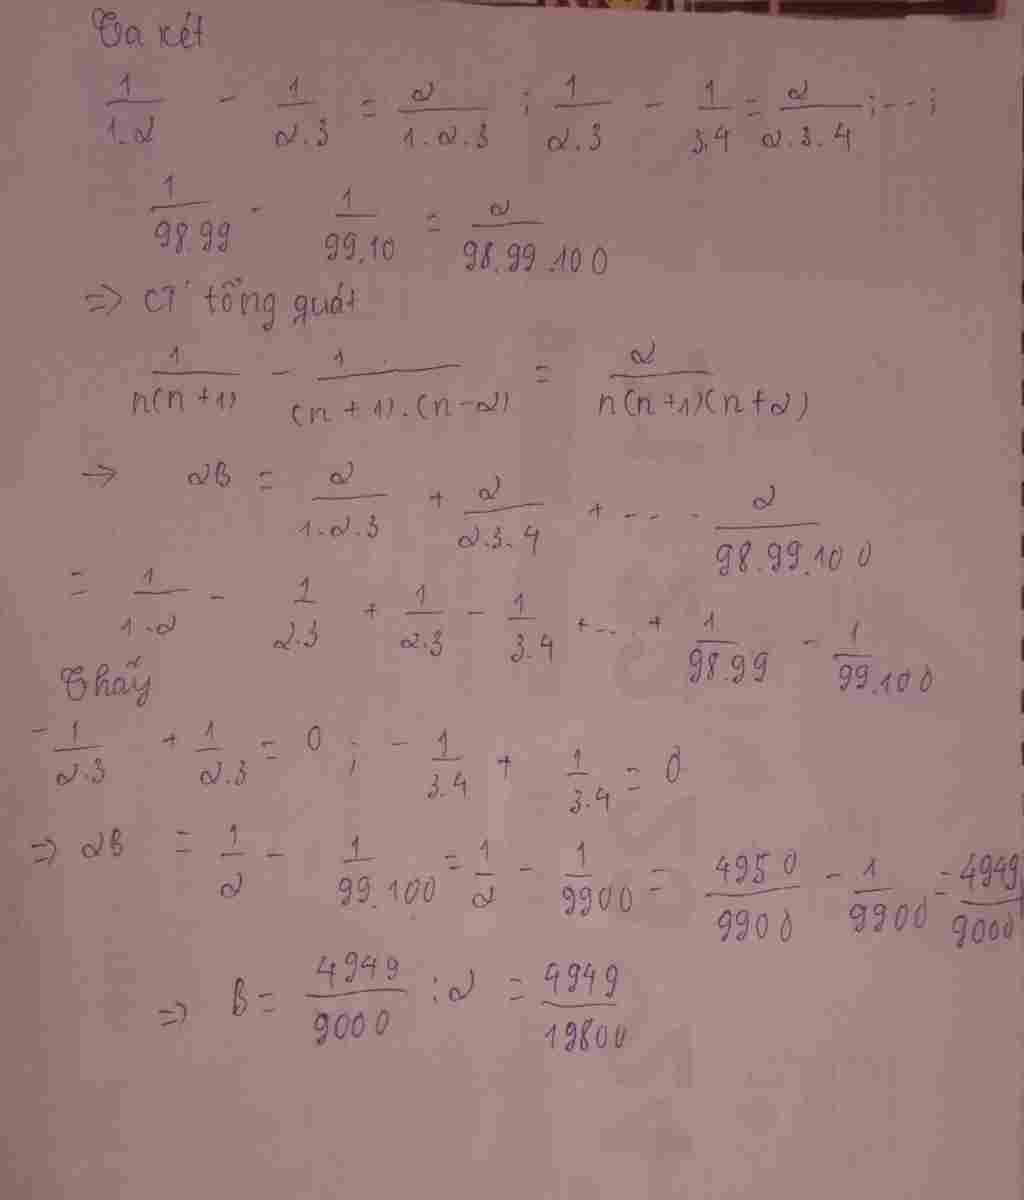 Ta xét
1/1.2 - 1/2.3 = 2/1.2.3 ; 1/2.3 - 1/3.4 = 2/2.3.4 ; -- ;
1/98.99 - 1/99.10 = 2/98.99.100
=> CT tổng quát
1/n(n+1) - 1/(n+1).(n-2) = 2/n(n+1)(n+2)
-> 2B = 2/1.2.3 + 2/2.3.4 + --- - 2/98.99.100
= 1/1.2 - 1/2.3 + 1/2.3 - 1/3.4 + -- + 1/98.99 - 1/99.100
Thấy
-1/2.3 + 1/2.3 = 0 ; - 1/3.4 + 1/3.4 = 0
=> 2B = 1/2 - 1/99.100 = 1/2 - 1/9900 = 4950/9900 - 1/9900 = 4949/9000
=> B = 4949/9000 : 2 = 4949/19800